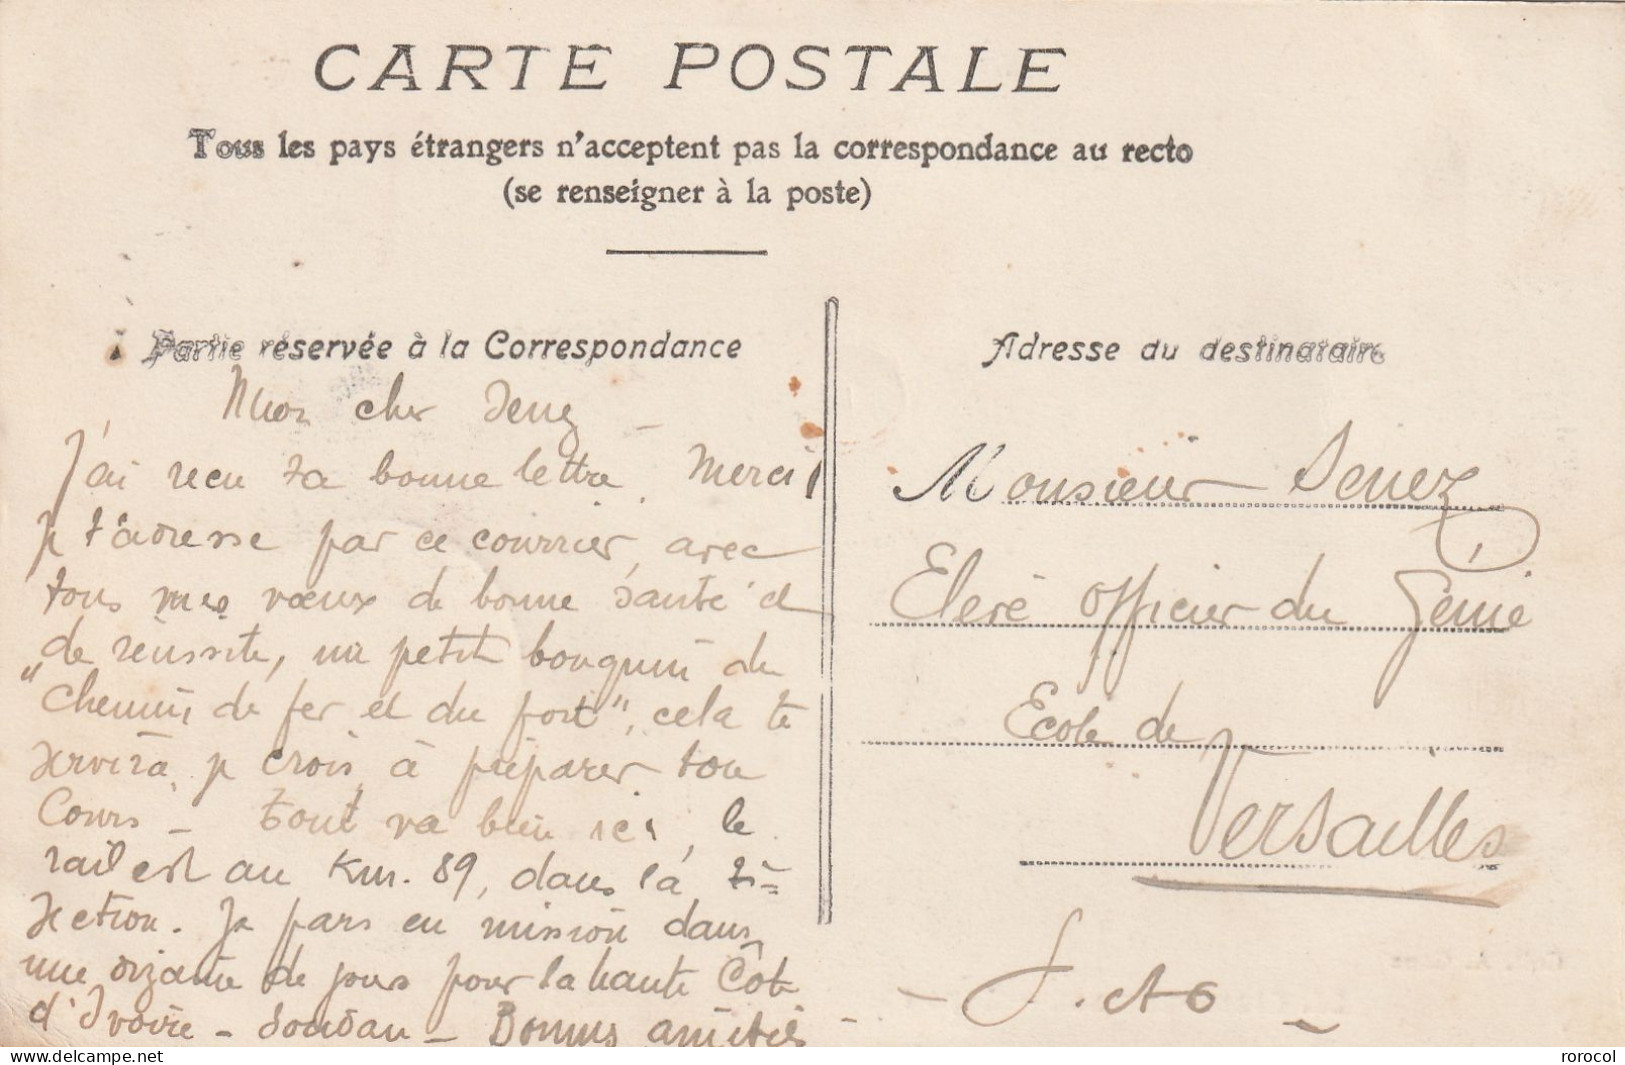 CARTE POSTALE
Tous les pays étrangers n'acceptent pas la correspondance au recto
(se renseigner à la poste)
Partie réservée à la Correspondance
Mon cher Senez -
J'ai reçu ta bonne lettre. Merci!
Je t'adresse par ce courrier, avec
tous mes vœux de bonne santé et
de réussite, un petit bouquin du
"Chemin de fer et du port", cela te
servira, je crois, à préparer ton
Cours - Tout va bien ici, le
rail est au Km. 89, dans la 2e
section. Je pars en mission dans
une dizaine de jours pour la haute Côte
d'Ivoire - Soudan - Bonnes amitiés -
Adresse du destinataire
Monsieur Senez
Elève officier du Génie
Ecole de
Versailles
- S. et O -
delcampe.net
rorocol